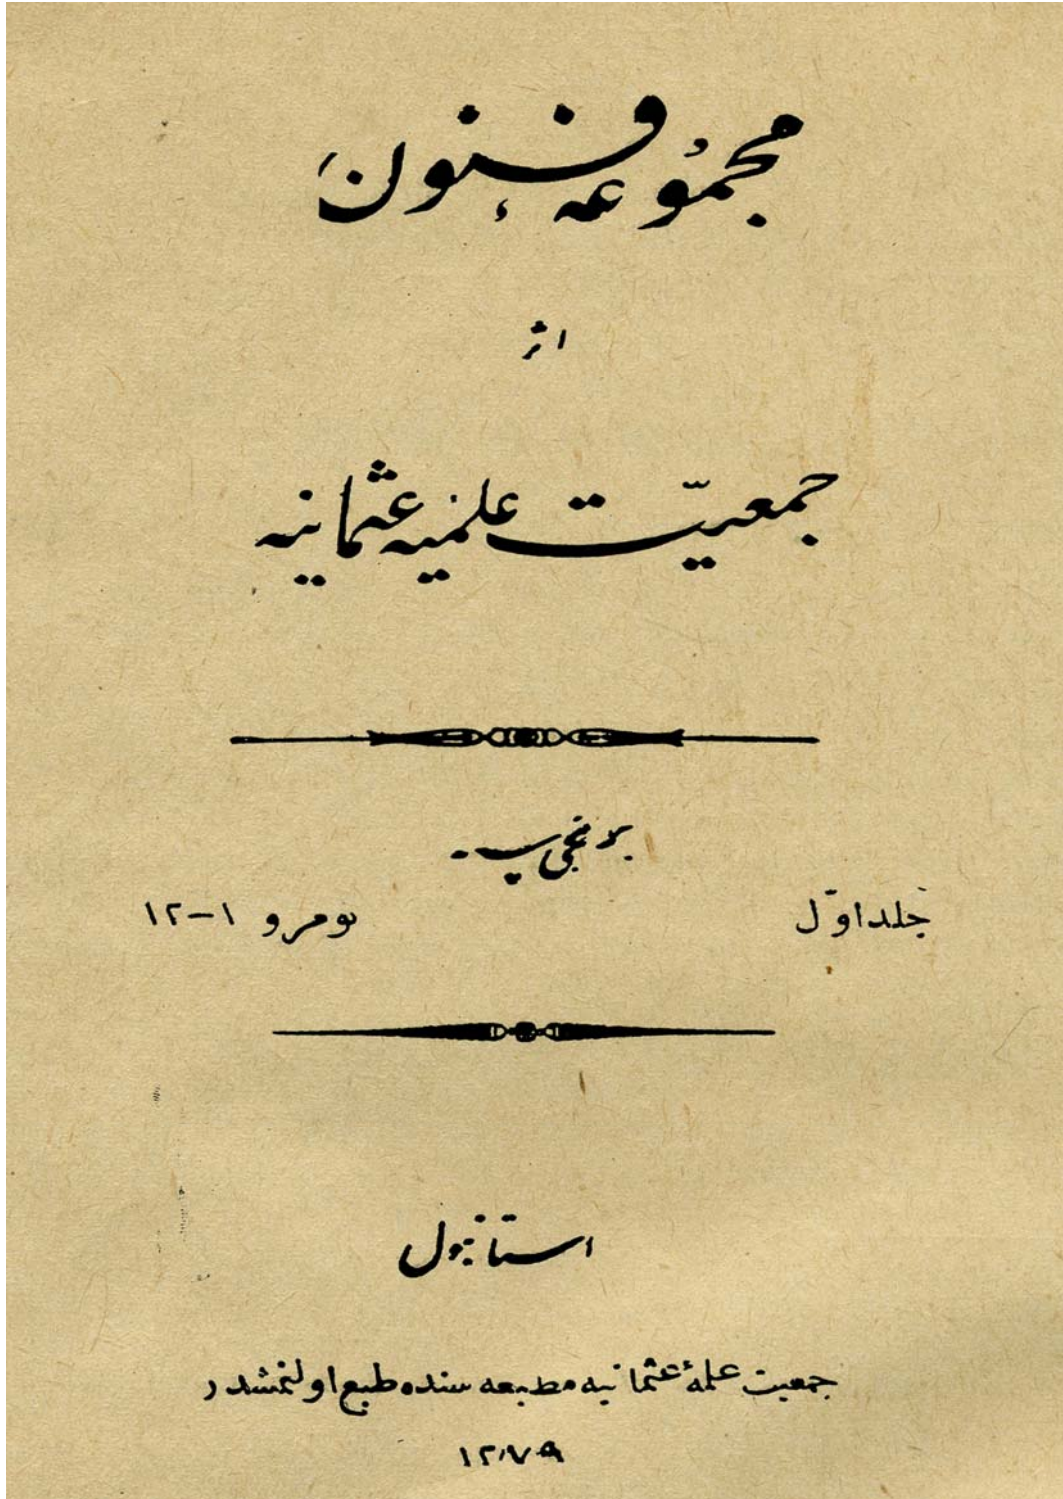 مجموعه فنون
اثر
جمعیّت علمیه عثمانیه
برنجی سنه
جلد اوّل نومرو ١-١٢
استانبول
جمعیت علمیۀ عثمانیه مطبعه سنده طبع اولنمشدر
١٢٧٩